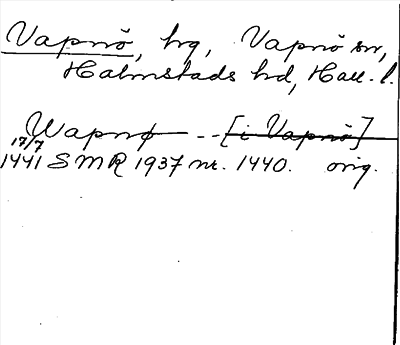 Vapnö, hg, Vapnö sn,
Halmstads hd, Hall. l.
Wapnø -- [i Vapnö]
17/7
1441 SMR 1937 nr. 1440. orig.